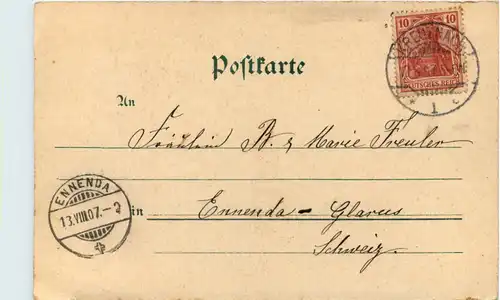 10 10
DEUTSCHES REICH
1
Postkarte
An
Fräulein B. & Marie Freuler
in Ennenda – Glarus
Schweiz.
ENNENDA
13.VIII.07.–2